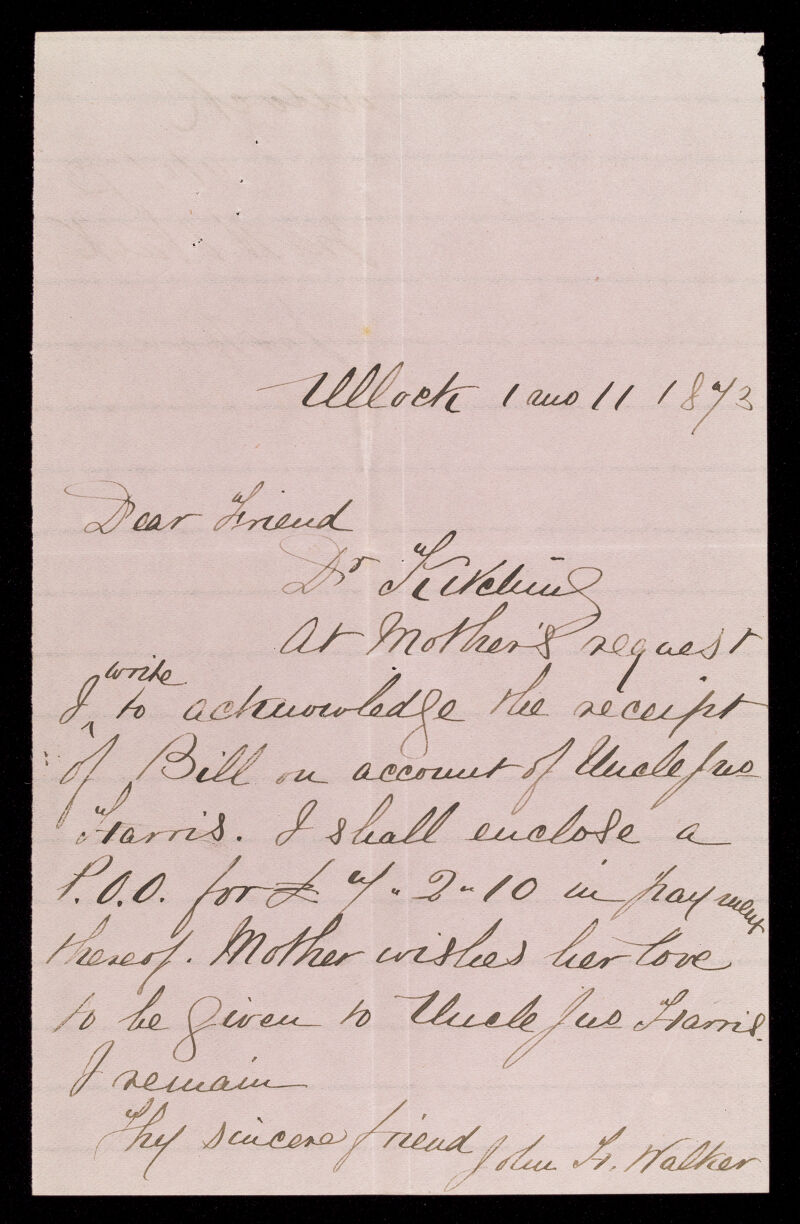 Ullock 1 mo 11 1873
Dear Friend
Dr Kitching
At Mother's request
I write to acknowledge the receipt
of Bill on account of Uncle Jno
Harris. I shall enclose a
P.O.O. for £7"2"10 in payment
thereof. Mother wishes her love
to be given to Uncle Jno Harris.
I remain
Thy sincere friend John H. Walker